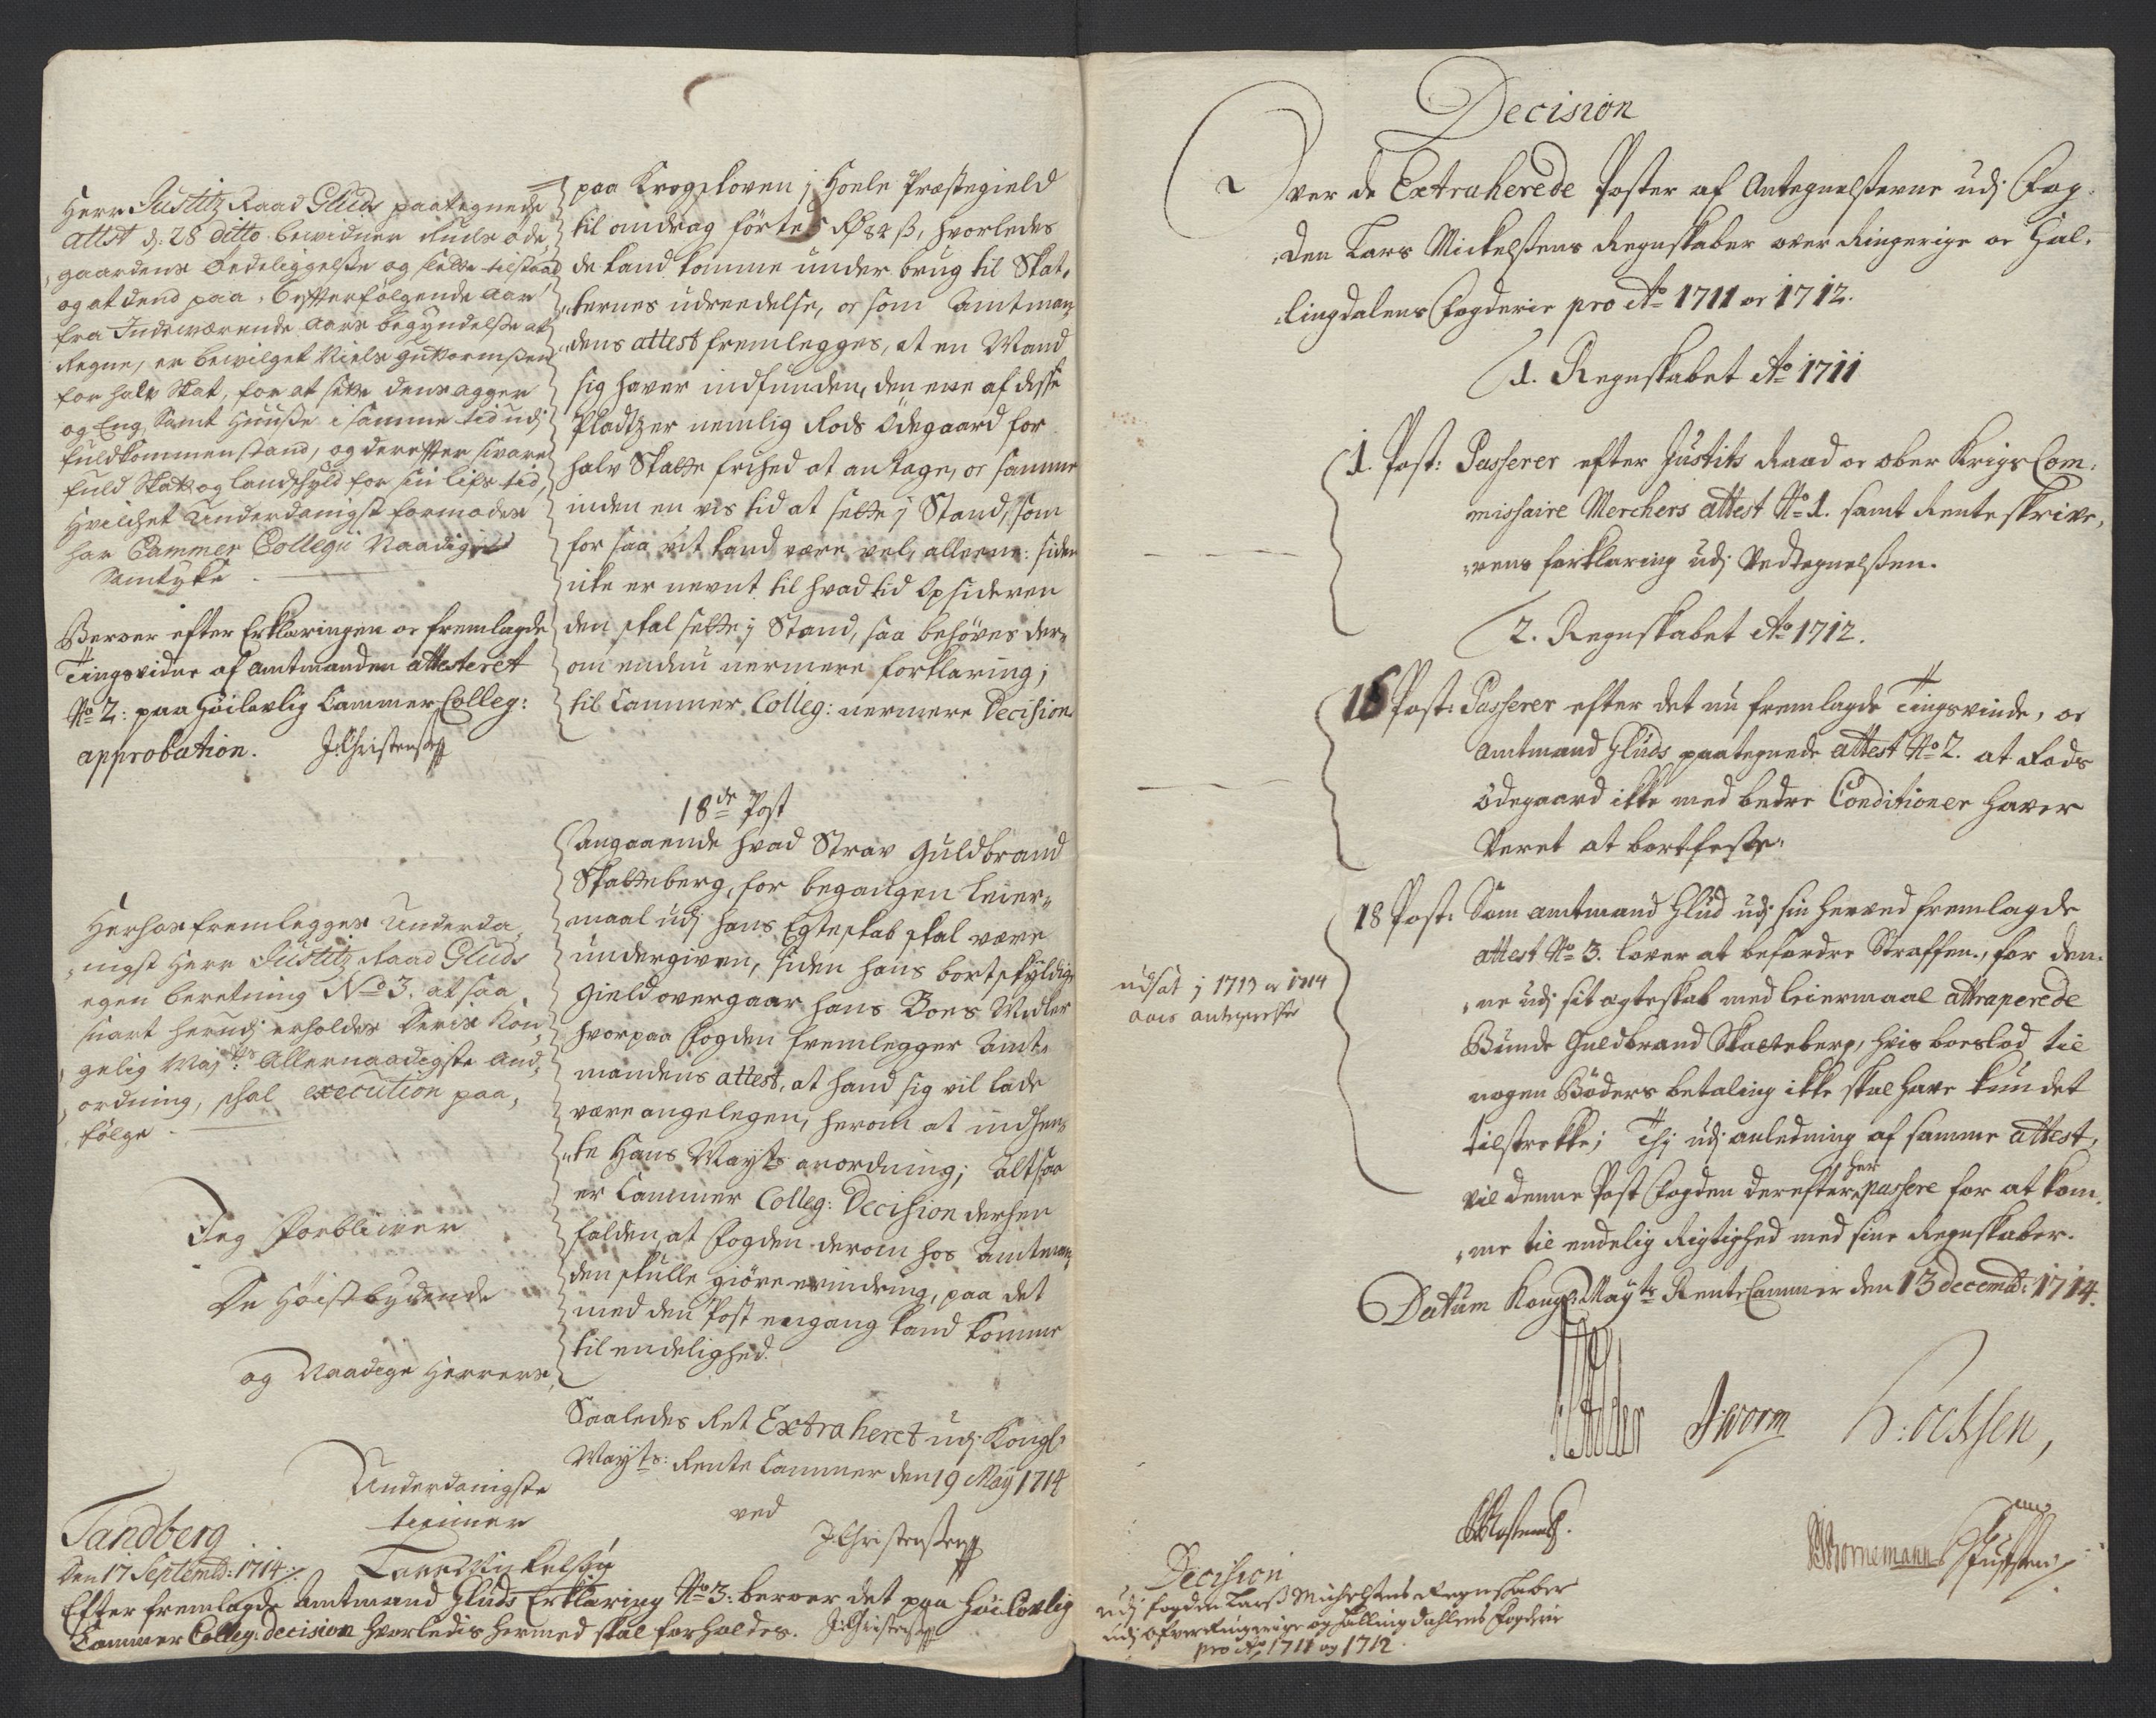 Herr Justitz Raad Gluds paategnede
attst d: 28 ditto bewidner Ruds öde,
gaardens Ödeliggelsse og slette tilstand
og at dend paa 6 effterfølgende aar
fra Indewærende Aars begyndelsse at
Regne, er bewilget Niels Guttormssen
for halv Skat, for at sette dens agger
og Eng, Samt Huusse i samme tid udj
fuldkommen stand, og derefter svare
fuld Skatt og landschyld for sin lifs tid,
Hvilchet Underdanigst formodes
har Cammer Collegii Naadigste
Samtyke.
Beroer efter Erklaringen oc fremlagde
Tingsvidne af amtmanden attesteret
No 2: paa Høilovlig Cammer Colleg:
approbation. J:Christenssen
Herhos fremlegges Underda,
nigst Herr Justitz Raad Gluds
egen beretning No 3. at saa
snart herudj erholdes Deris Kon,
gelig Maj:ts Allernaadigste And,
ordning, schal execution paa,
følge.
Jeg Forbliver
De Høistbydende
og Naadige Herrers
Underdanigste
tienner
Tandberg
Den 17 Septemb: 1714.
Lars Mickelsen
Efter fremlagde Amtmand Gluds Erklaring No 3: beroer det paa Høilovlig
Cammer Colleg: decision hvorledis hermed skal forholdes. J:Christenssen
paa Krogskoven j Hoele Præstegield
til andrag førte 5 Rd 84 ß, hvorledes
de kand komme under brug til Skat,
ternes udreedelse, oc som Amtman,
dens attest fremlegges, at en Mand
sig haver indfunden, den ene af disse
Pladtzer nemlig Rods Ödegaard for
halv Skatte frihed at antage, oc samme
inden en vis tid at sette j Stand, som
for saa vit kand være vel, alleene: siden
icke er nevnt til hvad tid Opsideren
den skal sette j Stand, saa behøves der,
om endnu nermere forklaring;
til Cammer Colleg: nermere Decision
18de Post
Angaaende hvad Strav Guldbrand
Skatteberg, for begangen leier,
maal udj hans Egteskab skal være
undergiven, siden hans bortskyldige
Gield overgaar hans Boes Midler
hvorpaa Fogden fremlegger Amt,
mandens attest, at hand sig vil lade
være angelegen, herom at indhen,
te Hans Mayts anordning; Altsaa
er Cammer Colleg: Decision derhen
falden, at Fogden derom hos Amtman,
den skulle giöre erindring, paa det
med den Post engang kand komme
til endelighed.
Saaledes Ret Extraheret udj Kongl:
Mayts: Rente Cammer den 19 May 1714
ved
J:Christenssen
Decision
Over de Extraherede Poster af Antegnelsserne udj Fog,
den Lars Mickelssens Regnskaber over Ringerige oc Hal,
lingdalens Fogderie pro Ao 1711 oc 1712.
1. Regnskabet Ao 1711
1. Post: Passerer efter Justits Raad oc ober Krigs Com,
missaire Merchers attest No 1. samt Renteskrive,
rens forklaring udj Vedtegnelssen.
2. Regnskabet Ao 1712.
16 Post: Passerer efter det nu fremlagde Tingsvinde, oc
Amtmand Gluds paategnede attest No 2. at Rods
Ödegaard ikke med bedre Conditioner haver
Veret at bortfeste.
18 Post: Som amtmand Glud udj sin herved fremlagde
attest No 3. lover at befordre Straffen, for den,
ne udj sit ægteskab med leiermaal attraperede
Bunde Guldbrand Skatteberg, hvis boeslod til
nogen Böders betaling ikke skal have kundet
tilstrekke; Thj udj anledning af samme attest,
vil denne Post Fogden derefter her passere for at kom,
me til endelig Rigtighed med sine Regnskaber.
udsat j 1713 oc 1714
aars antegnelsser
Datum Kongl: Mayts Rente Cammer den 13 decemb: 1714.
J:Worm
Bornemann
Decision
udj fogden Larss Michelsens Regnskaber
udj Ofver Ringerige og Halling dahlens Fogderie
pro Ao 1711 og 1712.